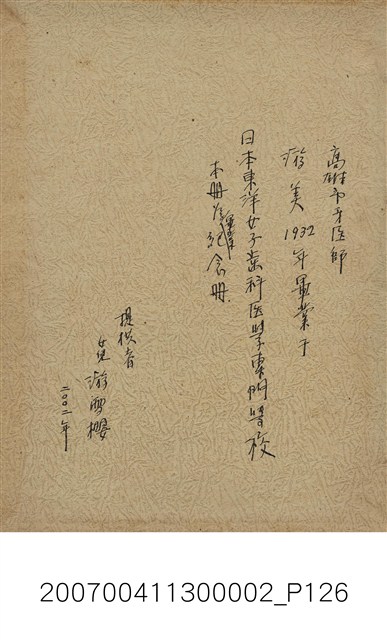 高雄市牙医師
游美 1932年畢業于
日本東洋女子歯科医学専門学校
本冊為畢業紀念冊
提供者
女兒 游雪櫻
二〇〇二年
200700411300002_P126